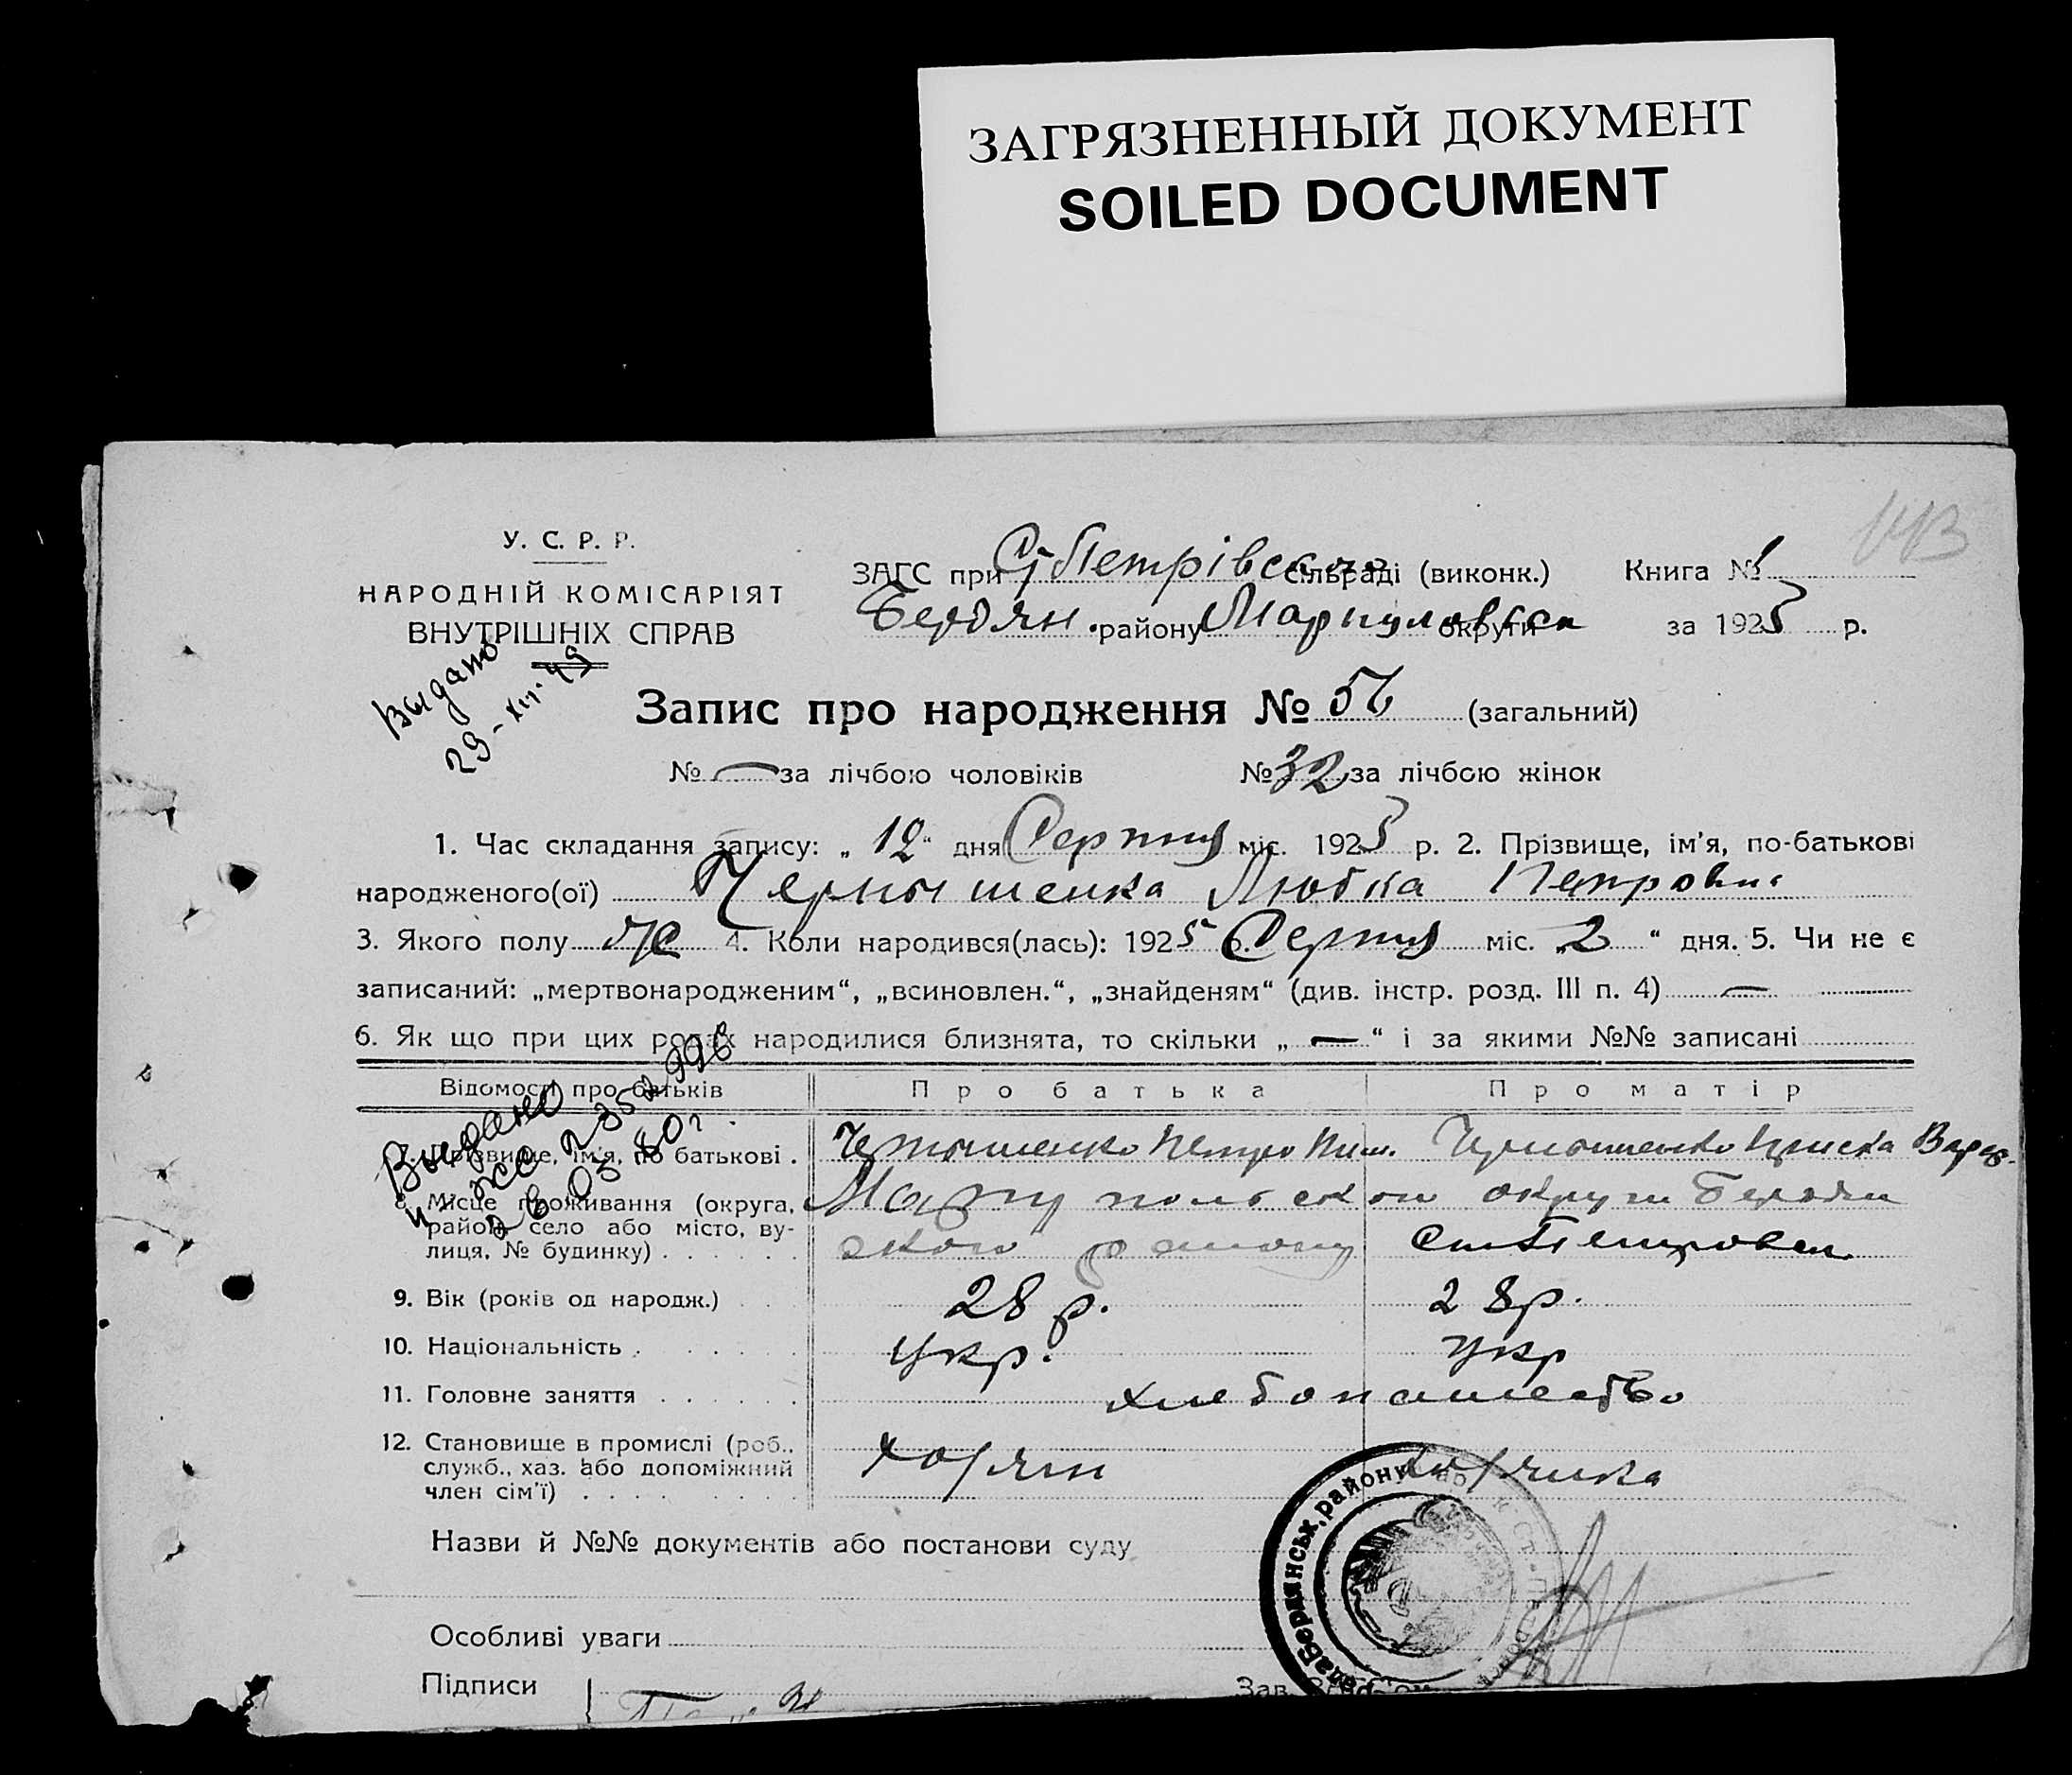 ЗАГРЯЗНЕННЫЙ ДОКУМЕНТ
SOILED DOCUMENT
143
У. С. Р. Р.
НАРОДНІЙ КОМІСАРІЯТ
ВНУТРІШНІХ СПРАВ
ЗАГС при Ст Петрівській сільраді (виконк.) Книга № 1
Бердян. району Мариупольськ округи за 1925 р.
Выдано
29-XII-49
Запис про народження № 56 (загальний)
№ — за лічбою чоловіків № 32 за лічбою жінок
1. Час складання запису: „ 12 “ дня Серпня міс. 1925 р. 2. Прізвище, ім'я, по-батькові
народженого(ої) Чернышенка Любка Петровна
3. Якого полу Ж 4. Коли народився(лась): 1925 р. Серпня міс. „2 “ дня. 5. Чи не є
записаний: „мертвонародженим“, „всиновлен.“, „знайденям“ (див. інстр. розд. III п. 4) —
6. Як що при цих родах народилися близнята, то скільки „ — “ і за якими №№ записані
Відомості про батьків Про батька Про матір
Выдано
26 03 80г.
7. Прізвище, ім'я, по батькові . Чернышенко Петро Чернышенко
8. Місце проживання (округа, Мариупольской округи Бердян
район, село або місто, ву-
лиця, № будинку) . . . . . . ского району Ст Петровка
9. Вік (років од народж.) . . 28 р. 28 р.
10. Національність . . . . . . Укр. Укр
11. Головне заняття . . . . . . хлебопашество
12. Становище в промислі (роб.,
служб., хаз. або допоміжний
член сім'ї) . . . . . . .
Бердянськ. району
Назви й №№ документів або постанови суду
Особливі уваги
Підписи Зав.